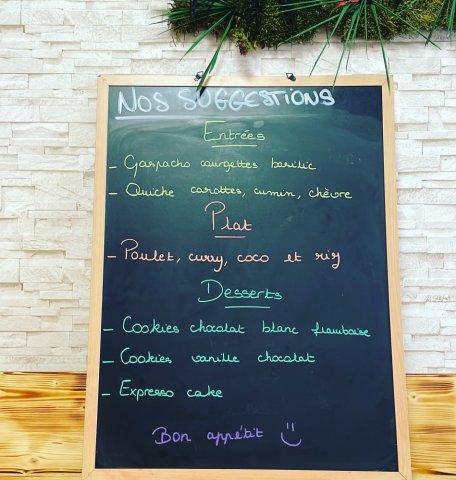 NOS SUGGESTIONS
Entrées
- Gaspacho courgettes basilic
- Quiche carottes, cumin, chèvre
Plat
- Poulet, curry, coco et riz
Desserts
- Cookies chocolat blanc framboise
- Cookies vanille chocolat
- Expresso cake
Bon appétit :)